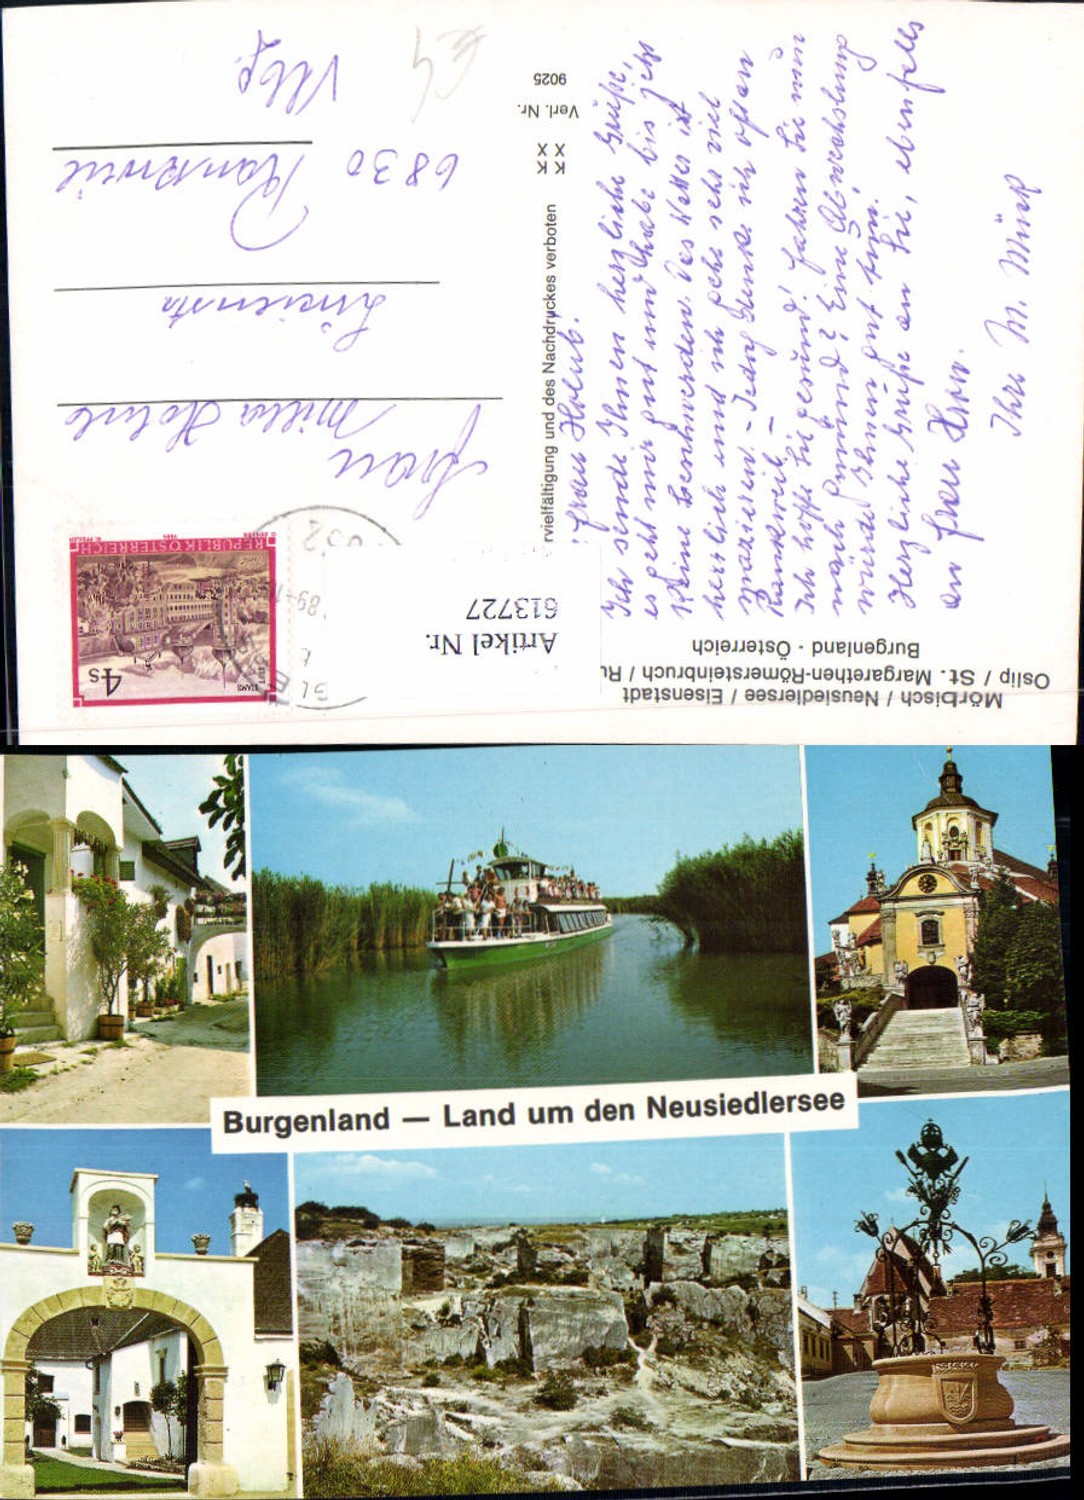 Mörbisch / Neusiedlersee / Eisenstadt
Oslip / St. Margarethen-Römersteinbruch / Ru
Burgenland - Österreich
Artikel Nr.
613727
rvielfältigung und des Nachdruckes verboten
K K
X X
Verl. Nr.
9025
Frau Holub!
Ich sende Ihnen herzliche Grüße,
es geht mir gut und habe bis jetzt
keine Beschwerden. Das Wetter ist
herrlich und ich gehe sehr viel
spazieren. - Jedoch denke ich oft an
Rankweil. -
Ich hoffe Sie gesund! Fahren Sie nun
nach Gmünd? Eine Abwechslung
würde Ihnen gut tun.
Herzliche Grüße an Sie, ebenfalls
an Frau Hrn.
Ihre M. Münk
4s
STIFT
STAMS
REPUBLIK ÖSTERREICH
Frau
Milla Holub
6830 Rankweil
Vlbg.
Burgenland — Land um den Neusiedlersee